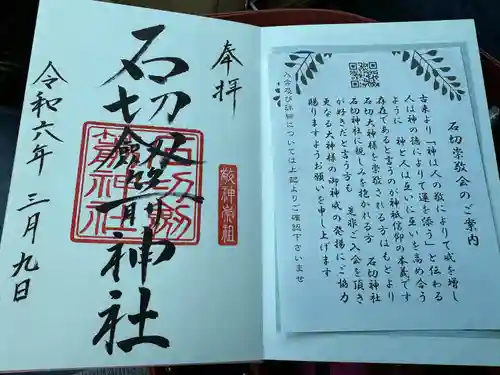 奉拝
石切劔箭神社
敬神崇祖
石切劔箭神社
令和六年 三月九日
石切崇敬会のご案内
古来より「神は人の敬によりて威を増し
人は神の徳によりて運を添う」と伝わる
ように 神と人は互いに高めい合う
存在であると言うのが神祇信仰の本義です
石切大神様を崇敬される方はもとより
石切神社に親しみを抱かれる方 石切神社
が好きだと言う方も 是非ご入会を頂き
更なる大神様の御神威の発揚にご協力
賜りますようお願いを申し上げます
入会及び詳細については上記よりご確認下さいませ